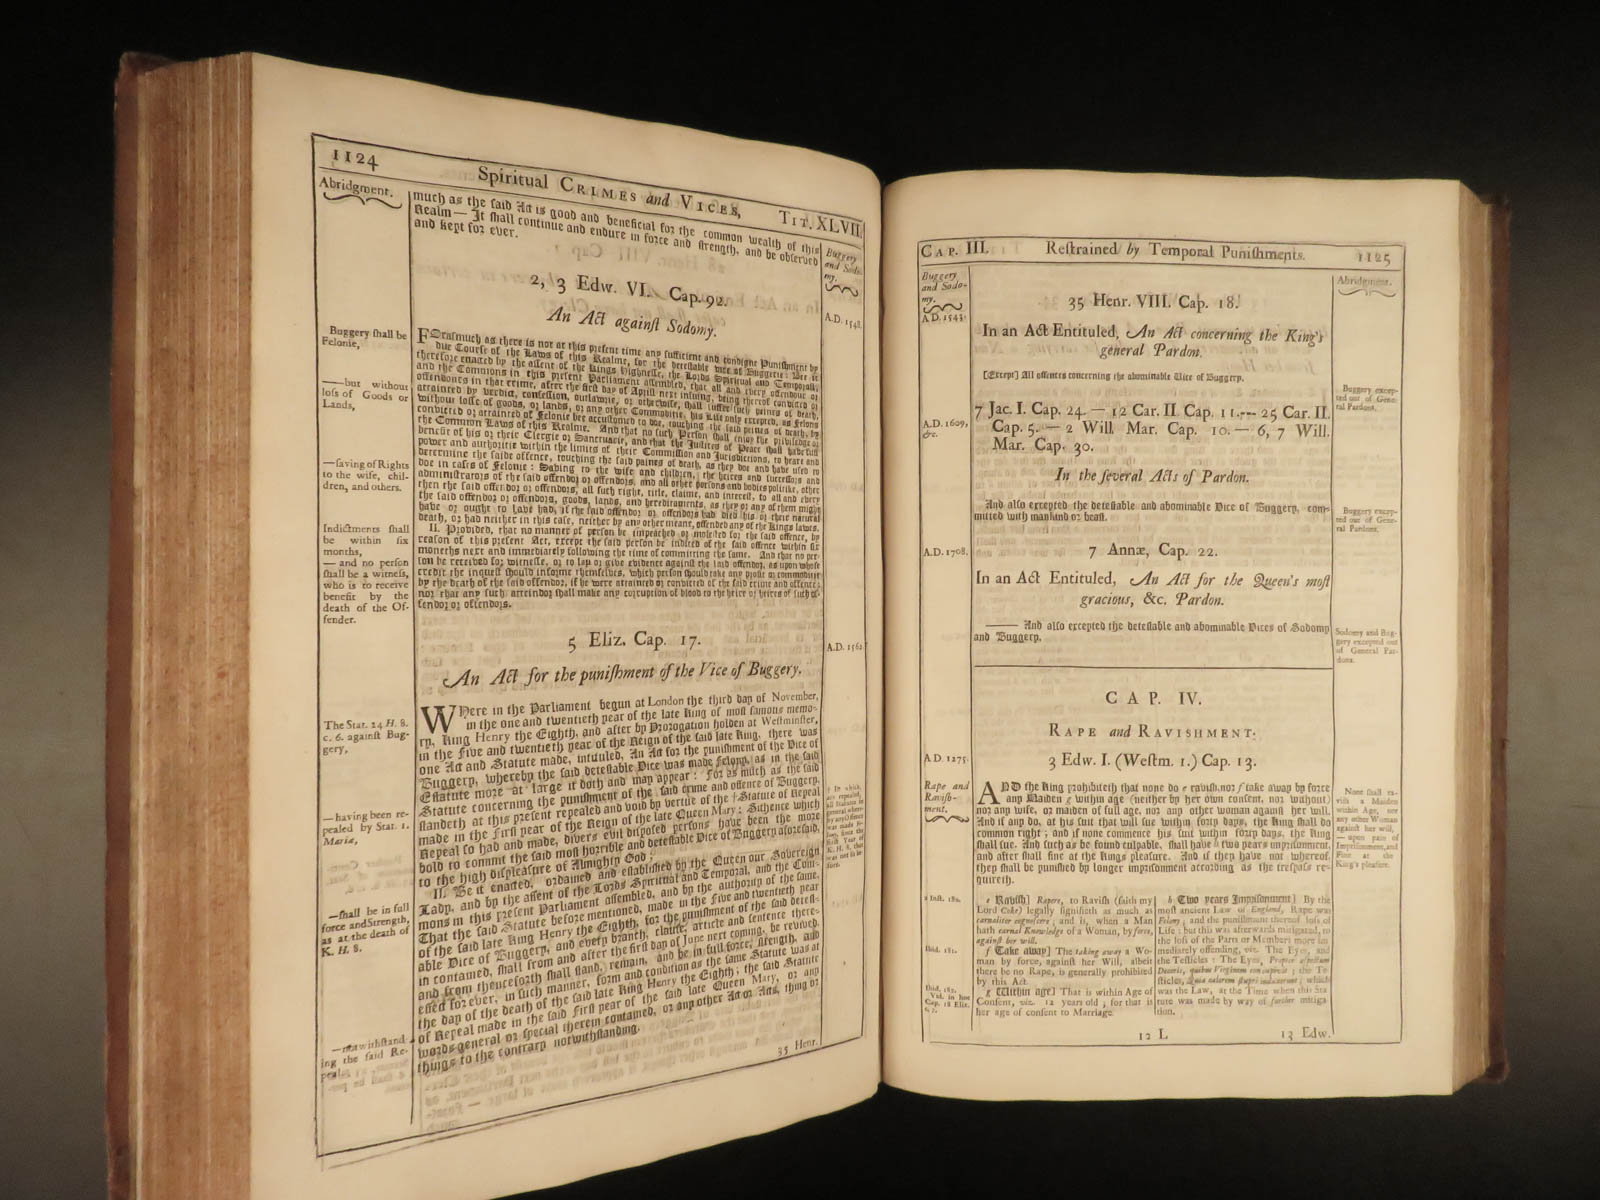 1124
Spiritual CRIMES and VICES,
TIT. XLVII.
Abridgment.
much as the said Act is good and beneficial for the common wealth of this
Realm — It shall continue and endure in force and strength, and be observed
and kept for ever.
Buggery
and Sodo-
my.
2, 3 Edw. VI. Cap. 92.
An Act againſt Sodomy.
A.D. 1548.
Buggery ſhall be
Felonie,
—but without
loſs of Goods or
Lands,
—ſaving of Rights
to the wife, chil-
dren, and others.
Indictments ſhall
be within ſix
months,
— and no perſon
ſhall be a witneſs,
who is to receive
benefit by the
death of the Of-
fender.
FOraſmuch as there is not at this preſent time any ſufficient and condigne Puniſhment by
due Courſe of the Laws of this Realme, for the deteſtable vice of Buggerie: Bee it
therefore enacted by the aſſent of the Kings Highneſſe, the Lords Spiritual and Temporall,
and the Commons in this preſent Parliament aſſembled, that all and every offendour or
offendours in that crime, after the firſt day of Aprill next inſuing, being thereof convicted or
attainted by verdict, confeſſion, outlawrie, or otherwiſe, ſhall ſuffer ſuch peines of death,
without loſſe of goods, or lands, or any other Commodities, his Life only excepted, as Felons
convicted or attainted of Felonie bee accuſtomed to doe, touching the ſaid peines of death, by
the Common Laws of this Realme. And that no ſuch Perſon ſhall enjoy the priviledge or
benefit of his or their Clergie or Sanctuarie, and that the Juſtices of Peace ſhall have full
power and authoritie within the limits of their Commiſſion and Jurisdictions, to heare and
determine the ſaide offence, touching the ſaid paines of death, as they doe and have uſed to
doe in caſes of Felonie: Saving to the wife and children, the heires and ſucceſſors and
adminiſtrators of the ſaid offendor or offendors, and all other perſons and bodies politike, other
then the ſaid offendor or offendors, all ſuch right, title, claime, and intereſt, to all and every
the ſaid offendor or offendors, goods, lands, and hereditaments, as they or any of them might
have or ought to have had, if the ſaid offendor or offendors had died his or their natural
death, or had neither in this caſe, neither by any other meane, offended any of the Kings lawes.
II. Provided, that no manner of perſon be impeached or moleſted for the ſaid offence, by
reaſon of this preſent Act, except the ſaid perſon be indited of the ſaid offence within ſix
moneths next and immediately following the time of committing the ſame. And that no per-
ſon be received for witneſſe, or to ſay or give evidence againſt the ſaid offendor, as upon whoſe
credit the inqueſt ſhould informe themſelves, which perſon ſhould take any profit or commoditie
by the death of the ſaid offendor, if he were attainted or convicted of the ſaid crime and offence;
nor that any ſuch atteindor ſhall make any corruption of blood to the heire or heires of ſuch of-
fendor or offendors.
5 Eliz. Cap. 17.
A.D. 1562.
An Act for the puniſhment of the Vice of Buggery.
The Stat. 24 H. 8.
c. 6. againſt Bug-
gery,
—having been re-
pealed by Stat. 1.
Mariæ,
—ſhall be in full
force and Strength,
as at the death of
K. H. 8.
—notwithſtand-
ing the ſaid Re-
peal.
WHere in the Parliament begun at London the third day of November,
in the one and twentieth year of the late King of moſt famous memo-
ry, King Henry the Eighth, and after by Prorogation holden at Weſtminſter,
in the Five and twentieth year of the Reign of the ſaid late King, there was
one Act and Statute made, intituled, An Act for the puniſhment of the Vice of
Buggery, whereby the ſaid deteſtable Vice was made Felony, as in the ſaid
Eſtatute more at large it doth and may appear: For as much as the ſaid
Statute concerning the puniſhment of the ſaid crime and offence of Buggery,
ſtandeth at this preſent repealed and void by vertue of the † Statute of Repeal
made in the Firſt year of the Reign of the late Queen Mary: Sithence which
Repeal ſo had and made, divers evil diſpoſed perſons have been the more
bold to commit the ſaid moſt horrible and deteſtable Vice of Buggery aforeſaid,
to the high diſpleaſure of Almighty God;
II. Be it enacted, ordained and eſtabliſhed by the Queen our Sovereign
Lady, and by the aſſent of the Lords Spiritual and Temporal, and the Com-
mons in this preſent Parliament aſſembled, and by the authority of the ſame,
That the ſaid Statute before mentioned, made in the Five and twentieth year
of the ſaid late King Henry the Eighth, for the puniſhment of the ſaid deteſt-
able Vice of Buggery, and every branch, clauſe, article and ſentence there-
in contained, ſhall from and after the firſt day of June next coming, be revived,
and from thenceforth ſhall ſtand, remain, and be in full force, ſtrength, and
effect for ever, in ſuch manner, form and condition as the ſame Statute was at
the day of the death of the ſaid late King Henry the Eighth; the ſaid Statute
of Repeal made in the ſaid Firſt year of the ſaid late Queen Mary, or any
words general or ſpecial therein contained, or any other Act or Acts, thing or
things to the contrary notwithſtanding.
35 Henr.
CAP. III.
Reſtrained by Temporal Puniſhments.
1125
Buggery
and Sodo-
my.
A.D. 1543.
Abridgment.
35 Henr. VIII. Cap. 18.
In an Act Entituled, An Act concerning the King's
general Pardon.
[Except] All offences concerning the abominable Vice of Buggery.
Buggery excep-
ted out of Gene-
ral Pardons.
A.D. 1609,
&c.
7 Jac. I. Cap. 24. — 12 Car. II. Cap. 11. — 25 Car. II.
Cap. 5. — 2 Will. Mar. Cap. 10. — 6, 7 Will.
Mar. Cap. 30.
In the ſeveral Acts of Pardon.
And alſo excepted the deteſtable and abominable Vice of Buggery, com-
mitted with mankind or beaſt.
Buggery excep-
ted out of Gene-
ral Pardons.
A.D. 1708.
7 Annæ, Cap. 22.
In an Act Entituled, An Act for the Queen's moſt
gracious, &c. Pardon.
—— And alſo excepted the deteſtable and abominable Vices of Sodomy
and Buggery.
Sodomy and Bug-
gery excepted out
of General Par-
dons.
CAP. IV.
RAPE and RAVISHMENT.
A.D. 1275.
3 Edw. I. (Weſtm. 1.) Cap. 13.
Rape and
Raviſh-
ment.
AND the King prohibiteth that none do e raviſh, nor f take away by force
any Maiden g within age (neither by her own conſent, nor without)
nor any wife, or maiden of full age, nor any other woman againſt her will.
And if any do, at his ſuit that will ſue within forty days, the King ſhall do
common right; and if none commence his ſuit within forty days, the King
ſhall ſue. And ſuch as be found culpable, ſhall have h two years impriſonment,
and after ſhall fine at the Kings pleaſure. And if they have not whereof,
they ſhall be puniſhed by longer impriſonment according as the treſpaſs re-
quireth.
None ſhall ra-
viſh a Maiden
within Age, nor
any other Woman
againſt her will,
— upon pain of
Impriſonment, and
Fine at the
King's pleaſure.
2 Inſt. 180.
e Raviſh] Rapere, to Raviſh (ſaith my
Lord Coke) legally ſignifieth as much as
carnaliter cognoſcere; and is, when a Man
hath carnal Knowledge of a Woman, by force,
againſt her will.
Ibid. 182.
f Take away] The taking away a Wo-
man by force, againſt her Will, albeit
there be no Rape, is generally prohibited
by this Act.
g Within age] That is within Age of
Conſent, viz. 12 years old; for that is
her age of conſent to Marriage.
h Two years Impriſonment] By the
moſt ancient Law of England, Rape was
Felony; and the puniſhment thereof loſs of
Life: but this was afterwards mitigated, to
the loſs of the Parts or Members more im-
mediately offending, viz. The Eyes, and
the Teſticles: The Eyes,
which
was the Law, at the Time when this Sta-
tute was made by way of further mitiga-
tion.
12 L
13 Edw.